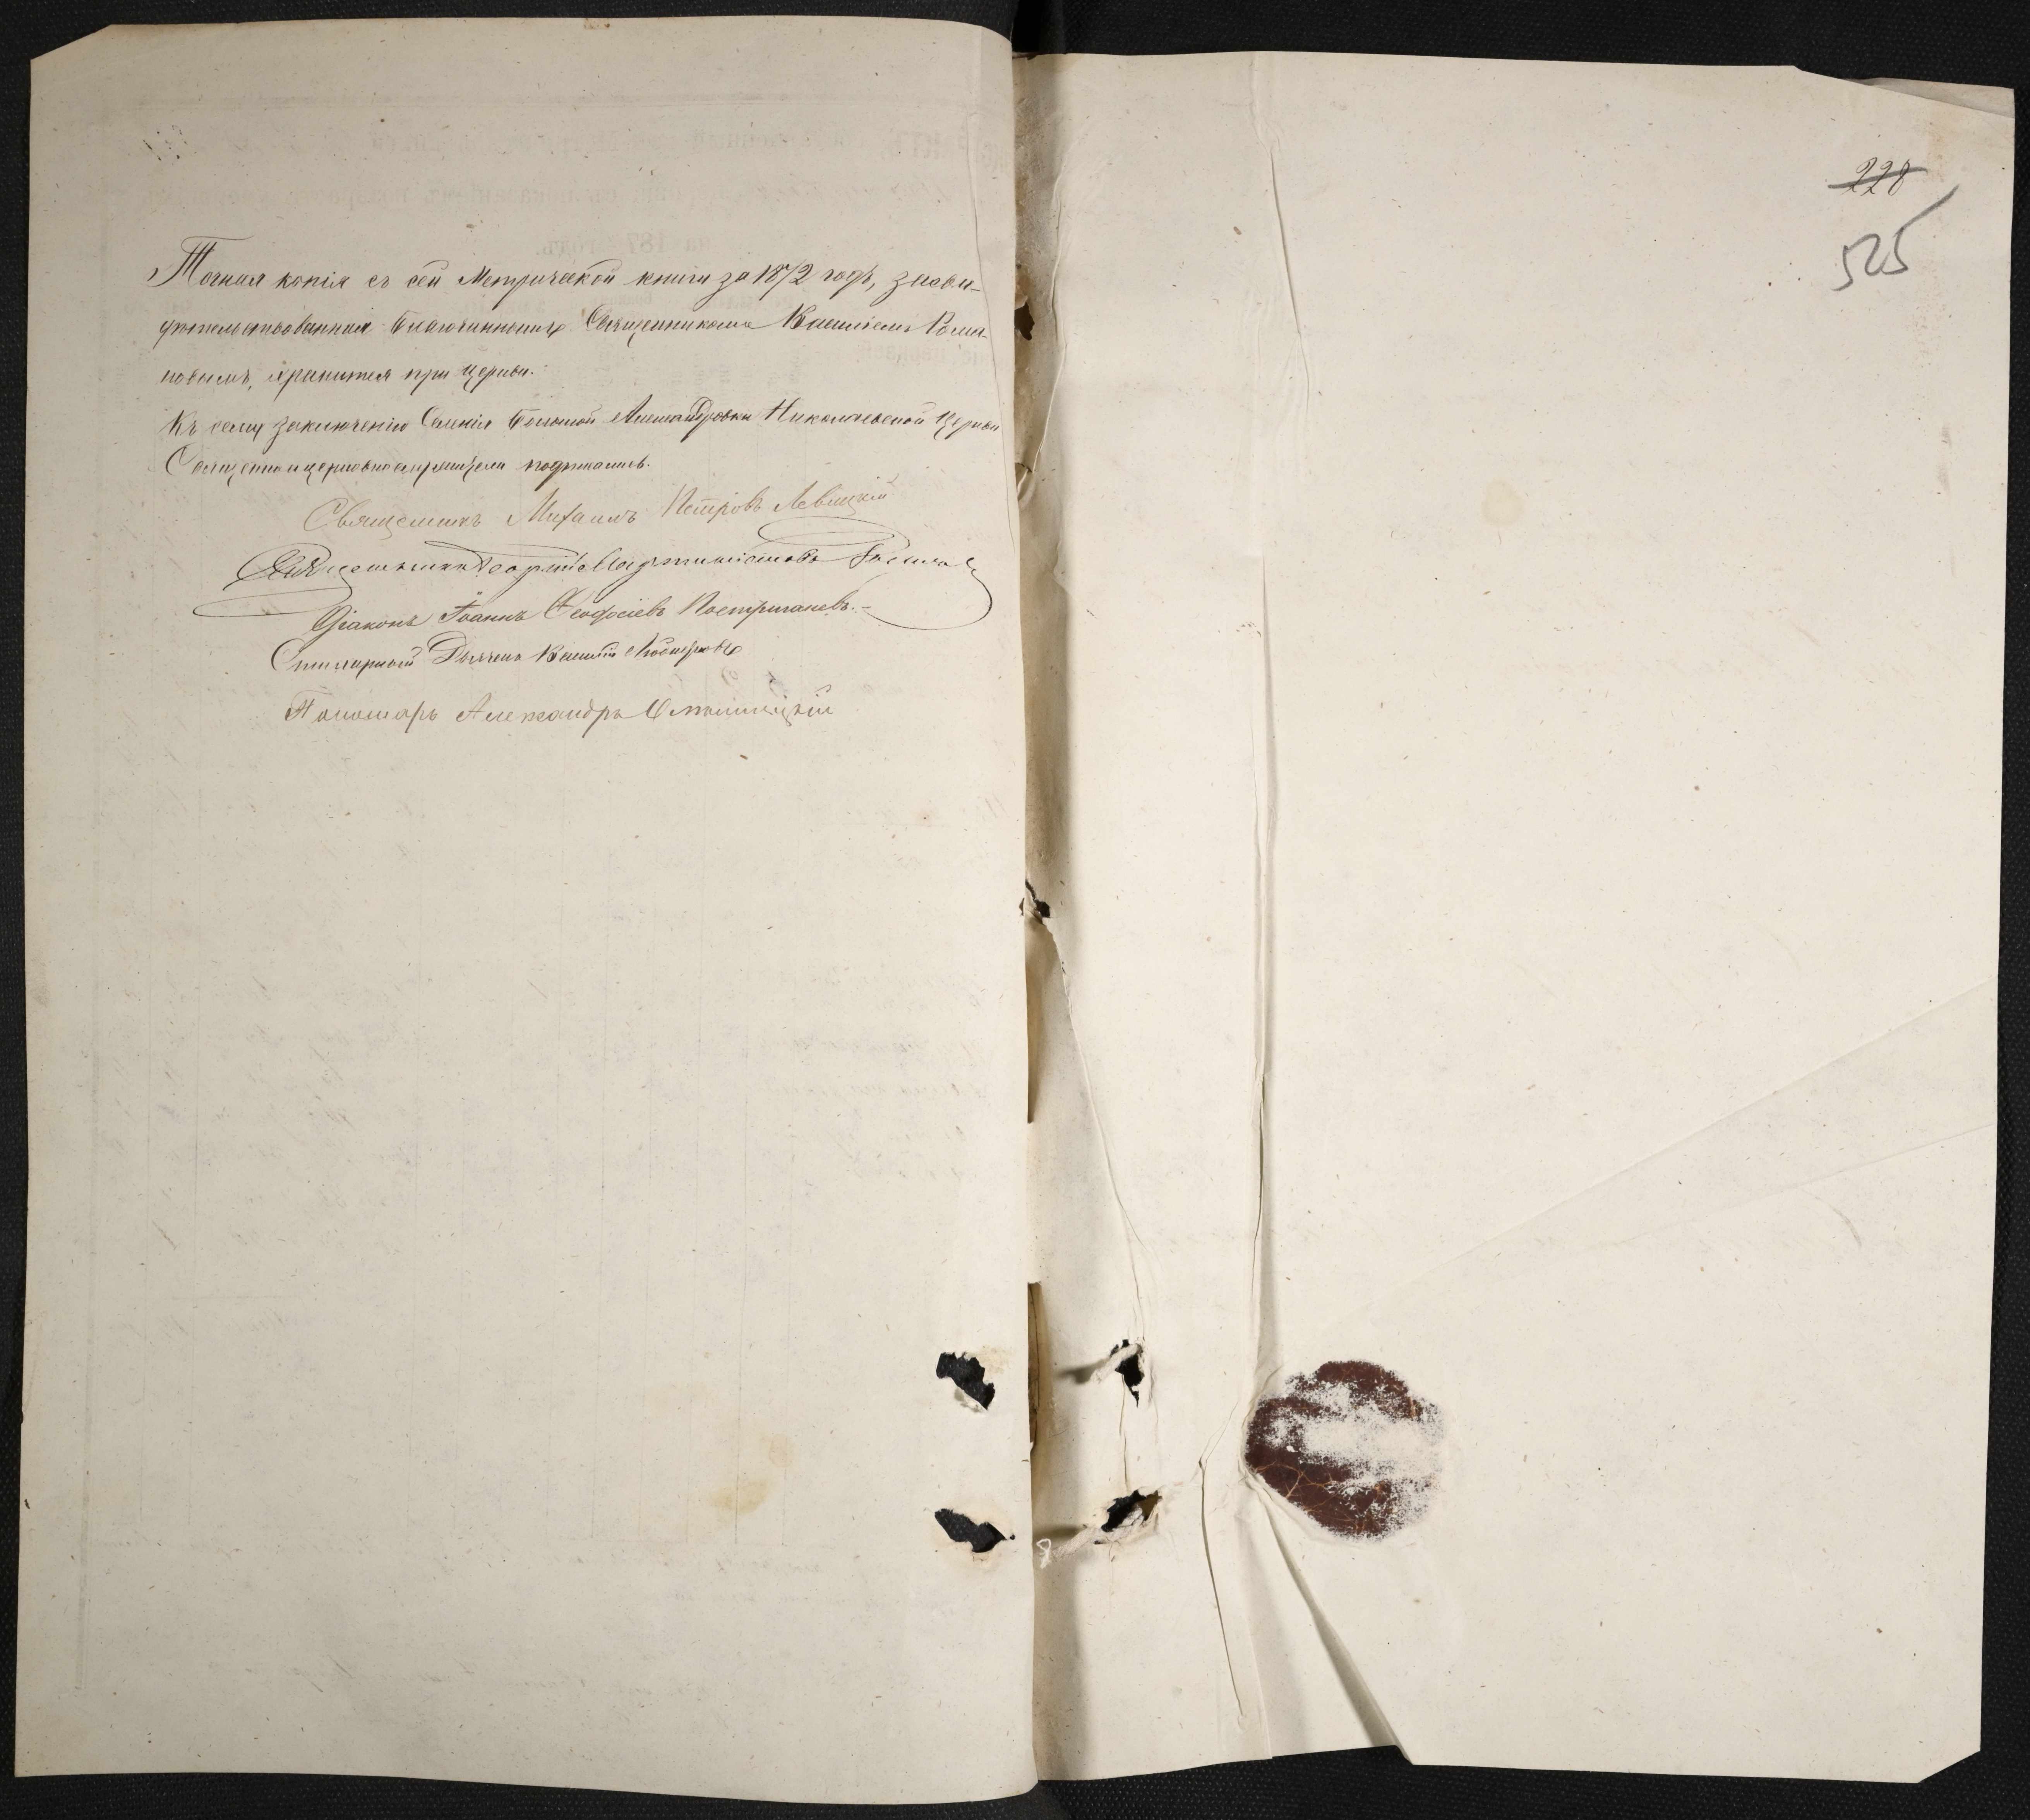 Точная копія съ сей Метрической книги за 1872 годъ, засви-
дѣтельствованная Благочиннымъ Священникомъ Василіемъ Рома-
новымъ, хранится при Церкви.
Къ сему заключенію Селенія Большой Александровки Николаевской Церкви
Священноицерковнослужители подписались.
Священникъ Михаилъ Петровъ Левицкій
Священникъ Георгій
Діаконъ Іоаннъ Ѳеодосіевъ
Дьячекъ Василій
Пономарь Александръ
228
525